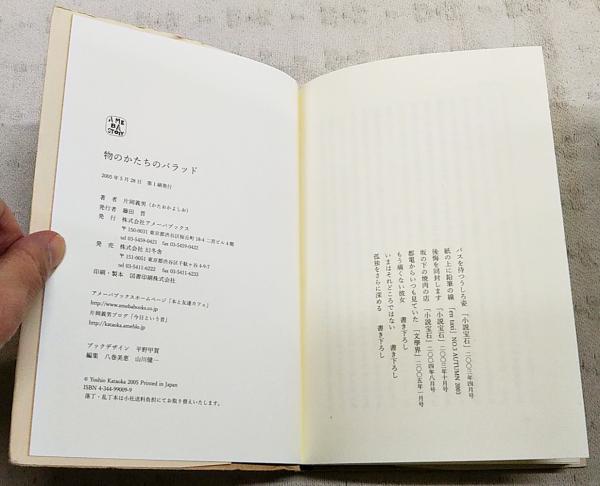 バスを待つうしろ姿 「小説宝石」二〇〇三年四月号
紙の上に鉛筆の線 「en taxi」NO.3 AUTUMN 2003
後悔を同封します 「小説宝石」二〇〇三年十月号
坂の下の焼肉の店 「小説宝石」二〇〇四年八月号
都電からいつも見ていた 「文學界」二〇〇五年一月号
もう痛くない彼女 書き下ろし
いまはそれどころではない 書き下ろし
孤独をさらに深める 書き下ろし
AMEBA
物のかたちのバラッド
2005年5月28日 第1刷発行
著者 片岡義男(かたおかよしお)
発行者 藤田 晋
発行 株式会社アメーバブックス
〒150-0031 東京都渋谷区桜丘町18-4 二宮ビル4階
tel 03-5459-0425 fax 03-5459-0422
発売 株式会社 幻冬舎
〒151-0051 東京都渋谷区千駄ヶ谷4-9-7
tel 03-5411-6222 fax 03-5411-6233
印刷・製本 図書印刷株式会社
アメーバブックスホームページ「本と友達カフェ」
http://www.amebabooks.co.jp
片岡義男ブログ「今日という昔」
http://kataoka.ameblo.jp
ブックデザイン 平野甲賀
編集 八巻美恵 山川健一
© Yoshio Kataoka 2005 Printed in Japan
ISBN 4-344-99009-9
落丁・乱丁本は小社送料負担にてお取り替えいたします。